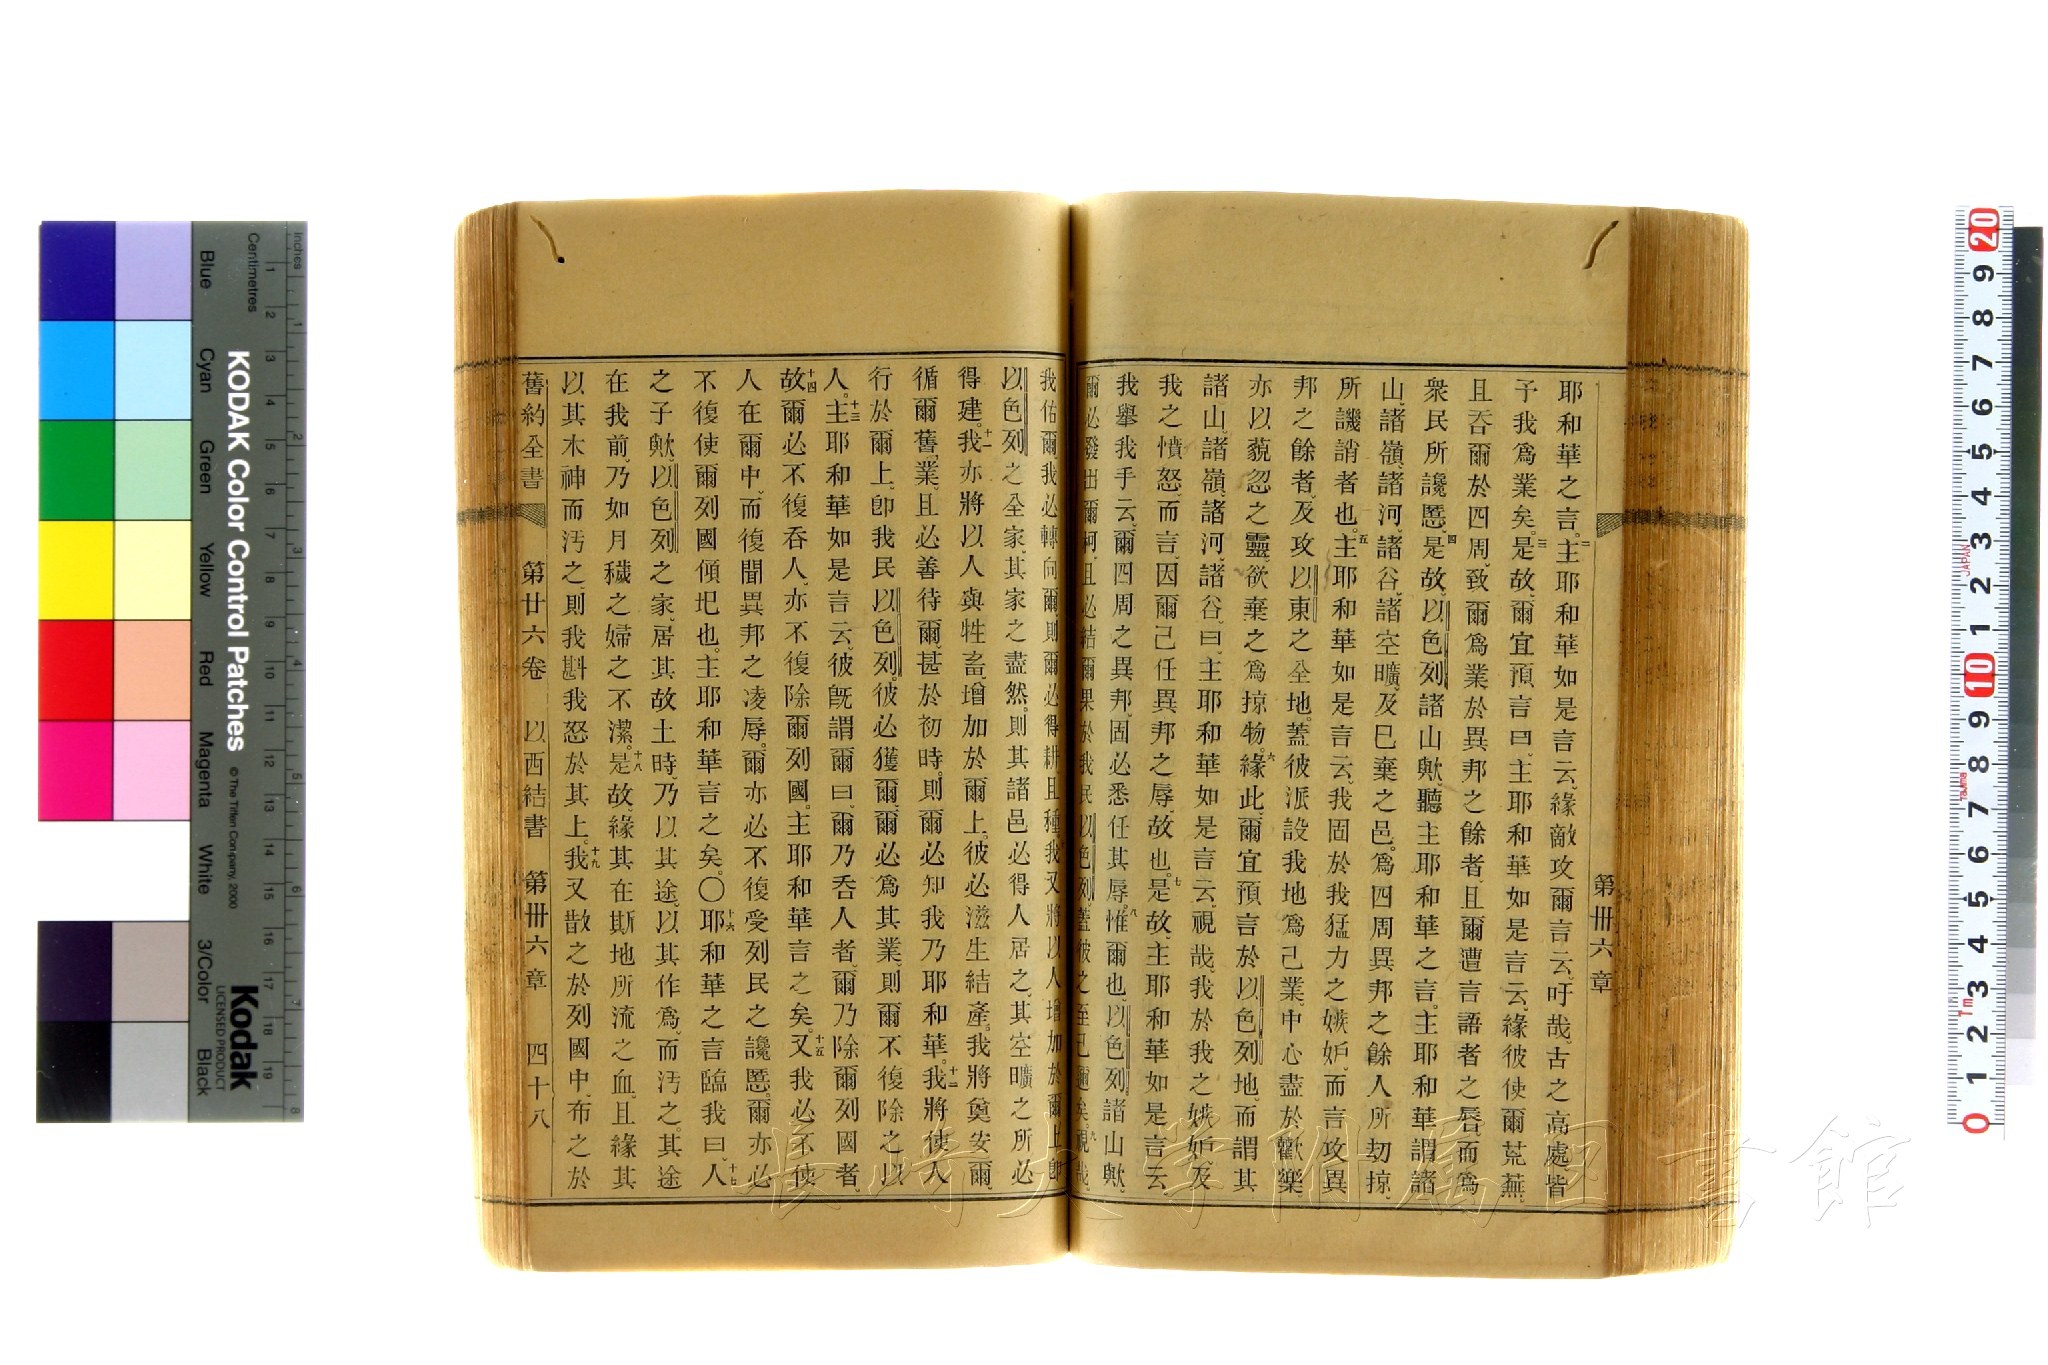 第卅六章
耶和華之言。二主耶和華如是言云、緣敵攻爾言云、吁哉、古之高處皆
予我爲業矣。三是故、爾宜預言曰、主耶和華如是言云、緣彼使爾荒蕪、
且吞爾於四周、致爾爲業於異邦之餘者、且爾遭言語者之唇、而爲
衆民所讒慝、四是故、以色列諸山歟、聽主耶和華之言、主耶和華謂諸
山、諸嶺、諸河、諸谷、諸空曠、及已棄之邑、爲四周異邦之餘人所刧掠、
所譏誚者也、五主耶和華如是言云、我固於我猛力之嫉妒、而言攻異
邦之餘者、及攻以東之全地、蓋彼派設我地爲己業、中心盡於歡樂、
亦以藐忽之靈、欲棄之爲掠物。六緣此、爾宜預言於以色列地、而謂其
諸山、諸嶺、諸河、諸谷曰、主耶和華如是言云、視哉、我於我之嫉妒、及
我之憤怒、而言、因爾已任異邦之辱故也。七是故、主耶和華如是言云、
我舉我手云、爾四周之異邦、固必悉任其辱。八惟爾也、以色列諸山歟、
爾必發出爾柯、且必結爾果於我民以色列、蓋彼之至已邇矣。九視哉、
我佑爾、我必轉向爾、則爾必得耕且種。我又將以人增加於爾上、即
以色列之全家、其家之盡然、則其諸邑必得人居之、其空曠之所必
得建。十一我亦將以人與牲畜、增加於爾上、彼必滋生結產、我將奠安爾、
循爾舊業、且必善待爾、甚於初時、則爾必知我乃耶和華。十二我將使人
行於爾上、即我民以色列、彼必獲爾、爾必爲其業、則爾不復除之以
人。十三主耶和華如是言云、彼旣謂爾曰、爾乃吞人者、爾乃除爾列國者、
十四故爾必不復吞人、亦不復除爾列國、主耶和華言之矣。十五又我必不使
人在爾中、而復聞異邦之凌辱、爾亦必不復受列民之讒慝、爾亦必
不復使爾列國傾圯也、主耶和華言之矣。〇十六耶和華之言臨我曰、十七人
之子歟、以色列之家、居其故土時、乃以其途、以其作爲、而汚之、其途
在我前、乃如月穢之婦之不潔。十八是故、緣其在斯地所流之血、且緣其
以其木神而汚之、則我斟我怒於其上。十九我又散之於列國中、布之於
舊約全書 第廿六卷 以西結書 第卅六章 四十八
KODAK Color Control Patches
© The Tiffen Company, 2000
Kodak
LICENSED PRODUCT
Inches
Centimetres
Blue Cyan Green Yellow Red Magenta White 3/Color Black
1 2 3 4 5 6 7 8 9 10 11 12 13 14 15 16 17 18 19
20 9 8 7 6 5 4 3 2 1 10 9 8 7 6 5 4 3 2 1 0
JAPAN
長崎大学附属図書館